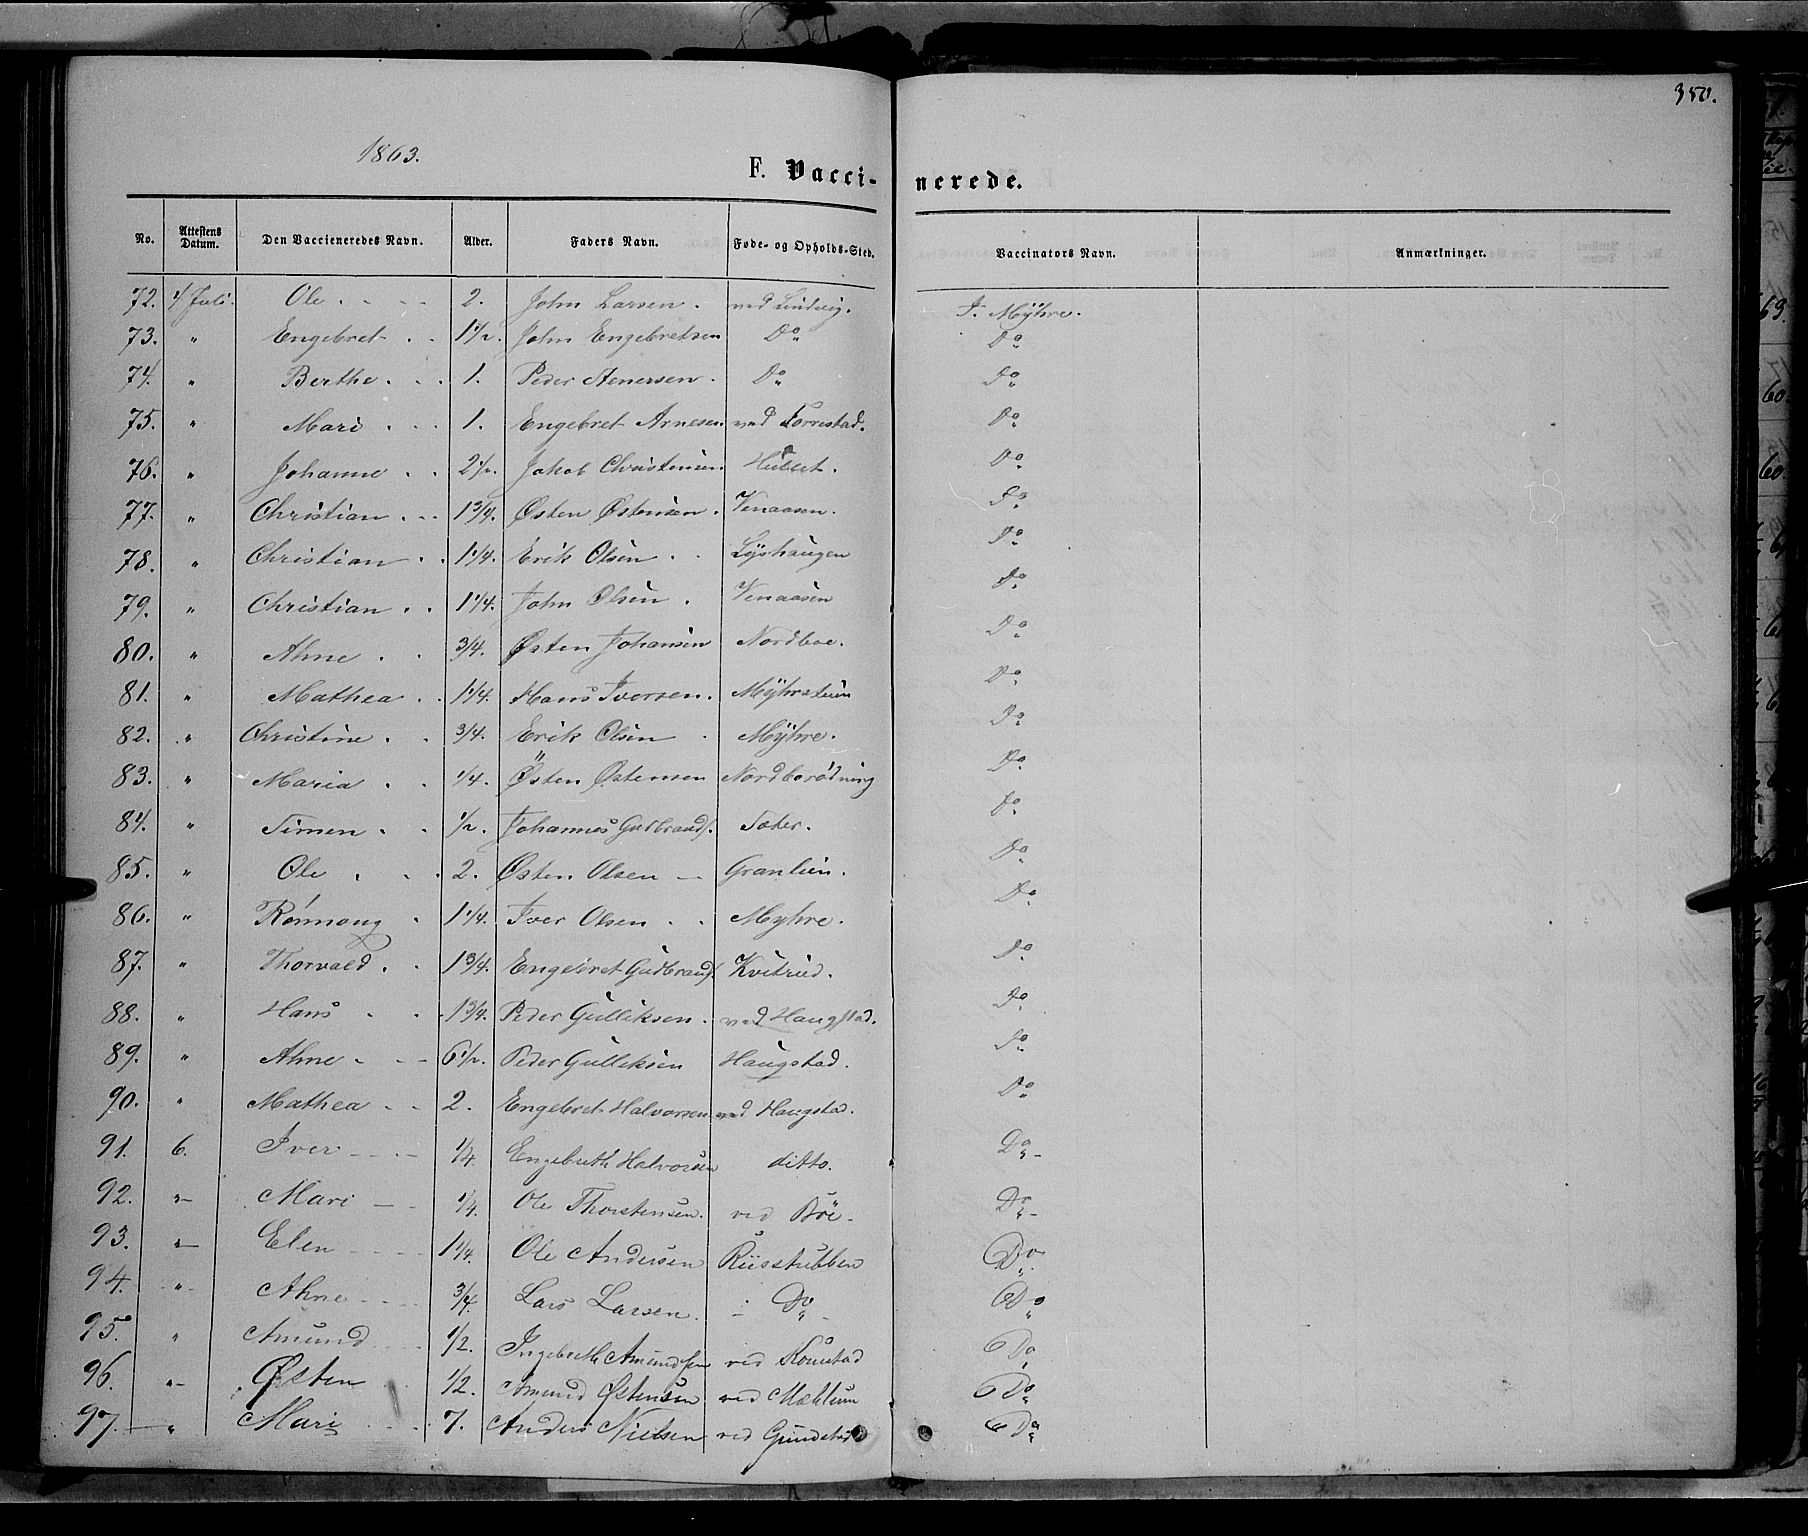 350.
1863.
F. Vacci- nerede.
No. Attestens Datum. Den Vaccieneredes Navn. Alder. Faders Navn. Føde- og Opholds-Sted. Vaccinators Navn. Anmærkninger.
72. 4 Juli. Ole 2. John Larsen. ved Lindvig. J. Myhre.
73. " Engebret 1 1/2. John Engebretsen Do Do
74. " Berthe 1. Peder Stenersen. Do Do
75. " Mari 1. Engebret Arnesen ved Torrestad. Do
76. " Johanne 2 1/2. Jakob Christensen Do
77. " Christian 1 3/4. Østen Østensen. Venaasen. Do
78. " Christian 1 1/4. Erik Olsen Lyshaugen Do
79. " Christian 1 1/4. John Olsen. Venaasen Do
80. " Ahne 3/4. Østen Johansen Nordboe. Do
81. " Mathea 1 1/4. Hans Iversen. Myhrstuen Do
82. " Christine 3/4. Erik Olsen Myhre. Do
83. " Maria 1/4. Østen Østensen Nordberødning Do
84. " Simen 1/2. Johannes Gudbrands. Sæter. Do
85. " Ole 2. Østen Olsen Granlien. Do
86. " Rønnoug 1 1/4. Iver Olsen Myhre. Do
87. " Thorvald 1 3/4. Engebret Gudbrands. Kvitrud. Do
88. " Hans 1 3/4. Peder Gulliksen. ved Haugstad. Do
89. " Ahne 6 1/2. Peder Gulliksen Haugstad. Do
90. " Mathea 2. Engebret Halvorsen ved Haugstad. Do
91. 6. Iver 1/4. Engebreth Halvorsen ditto. Do
92. " Mari 1/4. Ole Thorstensen. ved Bøe Do
93. " Elen 1 1/4. Ole Andersen Riisstubben Do
94. " Ahne 3/4. Lars Larsen. Do Do
95. " Amund 1/2. Ingebreth Amundsen ved Do
96. " Østen 1/2. Amund Østensen ved Mæhlum Do
97. " Mari 7. Anders Nielsen ved Gundstad Do